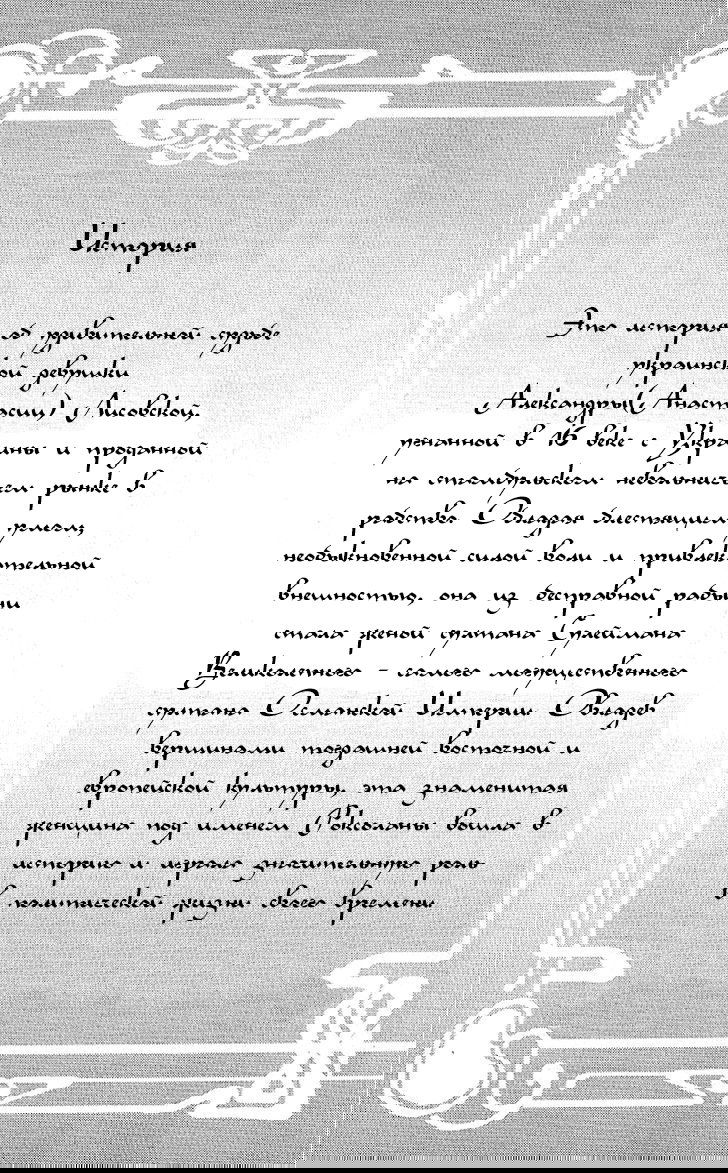 История
Это история
украинск
Александры Анаст
угнанной в XVI веке с Укра
на стамбульском невольнич
рабстве. Обладая блестящим
необыкновенной силой воли и привлек
внешностью, она из бесправной рабы
стала женой султана Сулеймана
Великолепного – самого могущественного
султана Османской Империи. Обладев
вершинами тогдашней восточной и
европейской культуры, эта знаменитая
женщина под именем Роксоланы вошла в
историю и играла значительную роль
политической жизни своего времени
ой рабыни
асии Лисовской,
ины и проданной
ом рынке в
умом,
ательной
ни